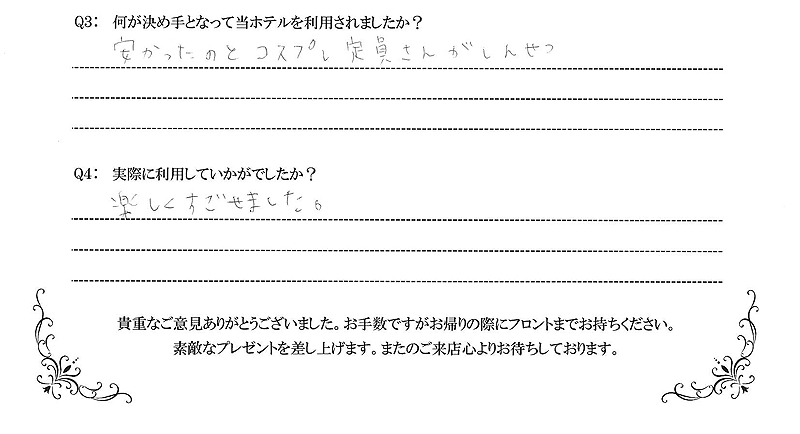 Q3： 何が決め手となって当ホテルを利用されましたか？
安かったのと コスプレ 定員さんがしんせつ
Q4： 実際に利用していかがでしたか？
楽しくすごせました。
貴重なご意見ありがとうございました。お手数ですがお帰りの際にフロントまでお持ちください。
素敵なプレゼントを差し上げます。またのご来店心よりお待ちしております。